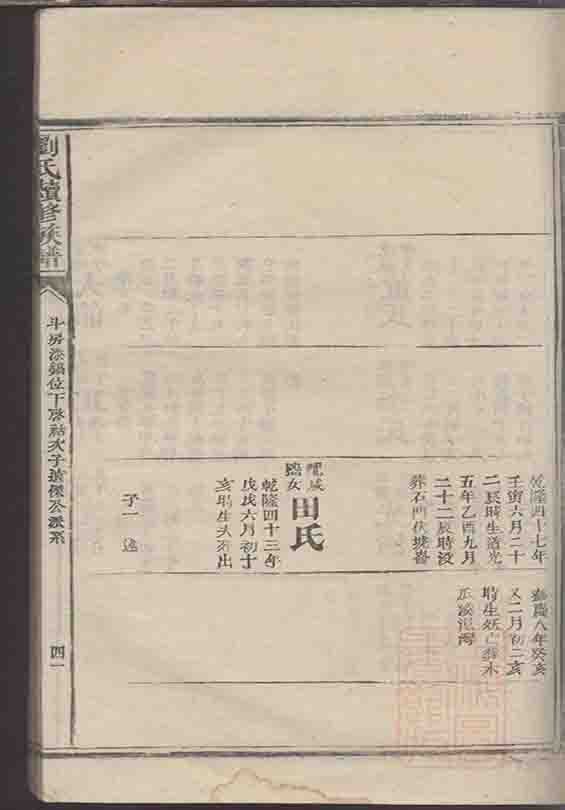 乾隆四十七年
壬寅六月二十
二辰時生道光
五年乙酉九月
二十二辰時沒
葬石門伏塘畲
嘉慶八年癸亥
又二月初二亥
時生妖亡葬木
瓜溪泥灣
田氏
監女
乾隆四十三年
戊戌六月初十
亥時生夫不出
子一
劉氏續修族譜
斗房添錫位下啓
次子
公派系
四一